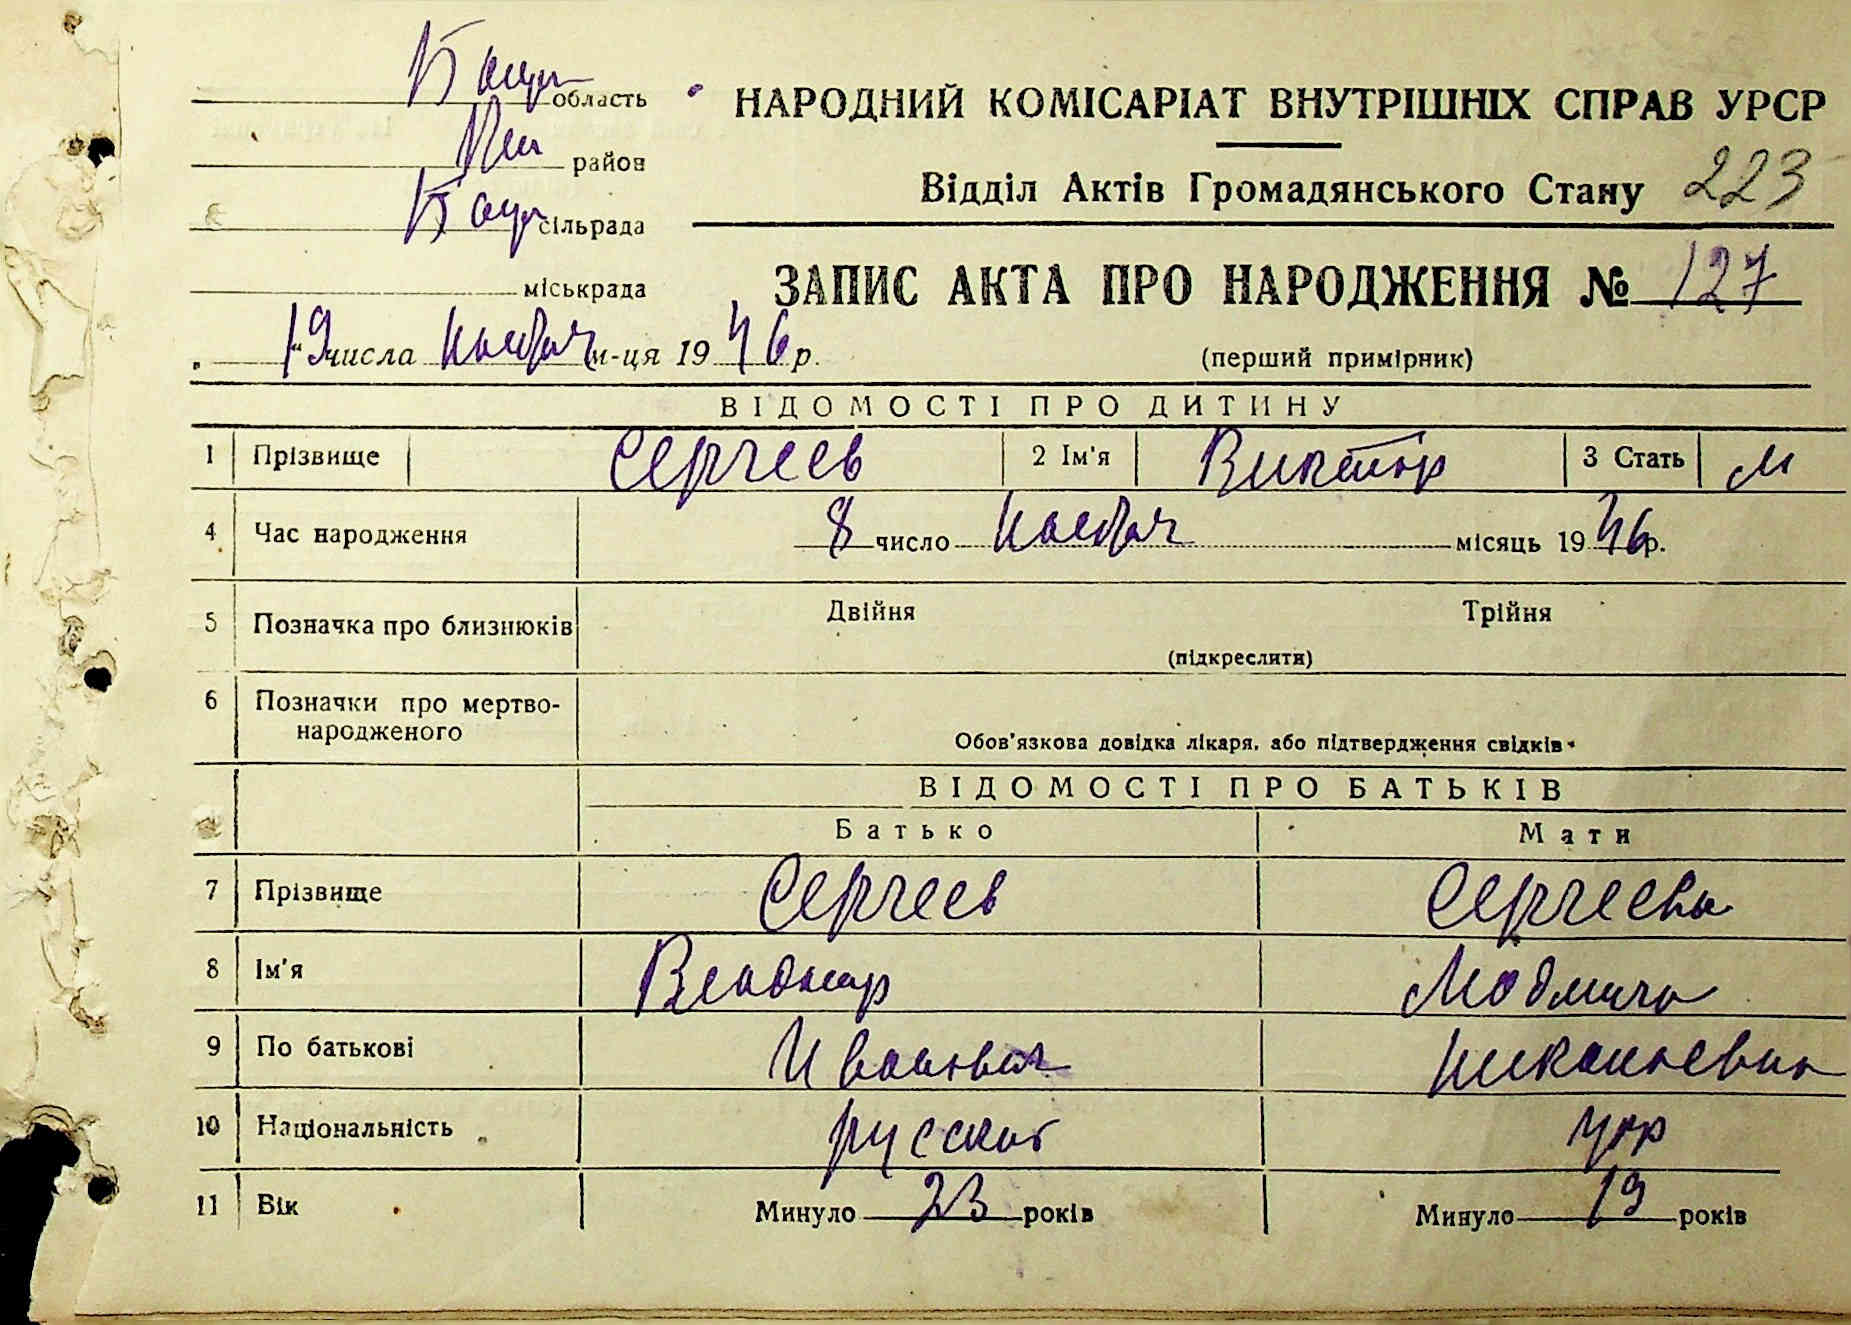 область
район
сільрада
міськрада
НАРОДНИЙ КОМІСАРІАТ ВНУТРІШНІХ СПРАВ УРСР
Відділ Актів Громадянського Стану 223
ЗАПИС АКТА ПРО НАРОДЖЕННЯ № 127
„ 19 " числа ноября м-ця 1946 р.
(перший примірник)
ВІДОМОСТІ ПРО ДИТИНУ
1 Прізвище Сергеев 2 Ім'я Виктор 3 Стать м
4 Час народження 8 число ноября місяць 1946 р.
5 Позначка про близнюків Двійня Трійня
(підкреслити)
6 Позначки про мертво-
народженого
Обов'язкова довідка лікаря, або підтвердження свідків.
ВІДОМОСТІ ПРО БАТЬКІВ
Батько Мати
7 Прізвище Сергеев Сергеева
8 Ім'я Владимир Людмила
9 По батькові Иванович Николаевна
10 Національність русский укр
11 Вік Минуло 23 років Минуло 19 років